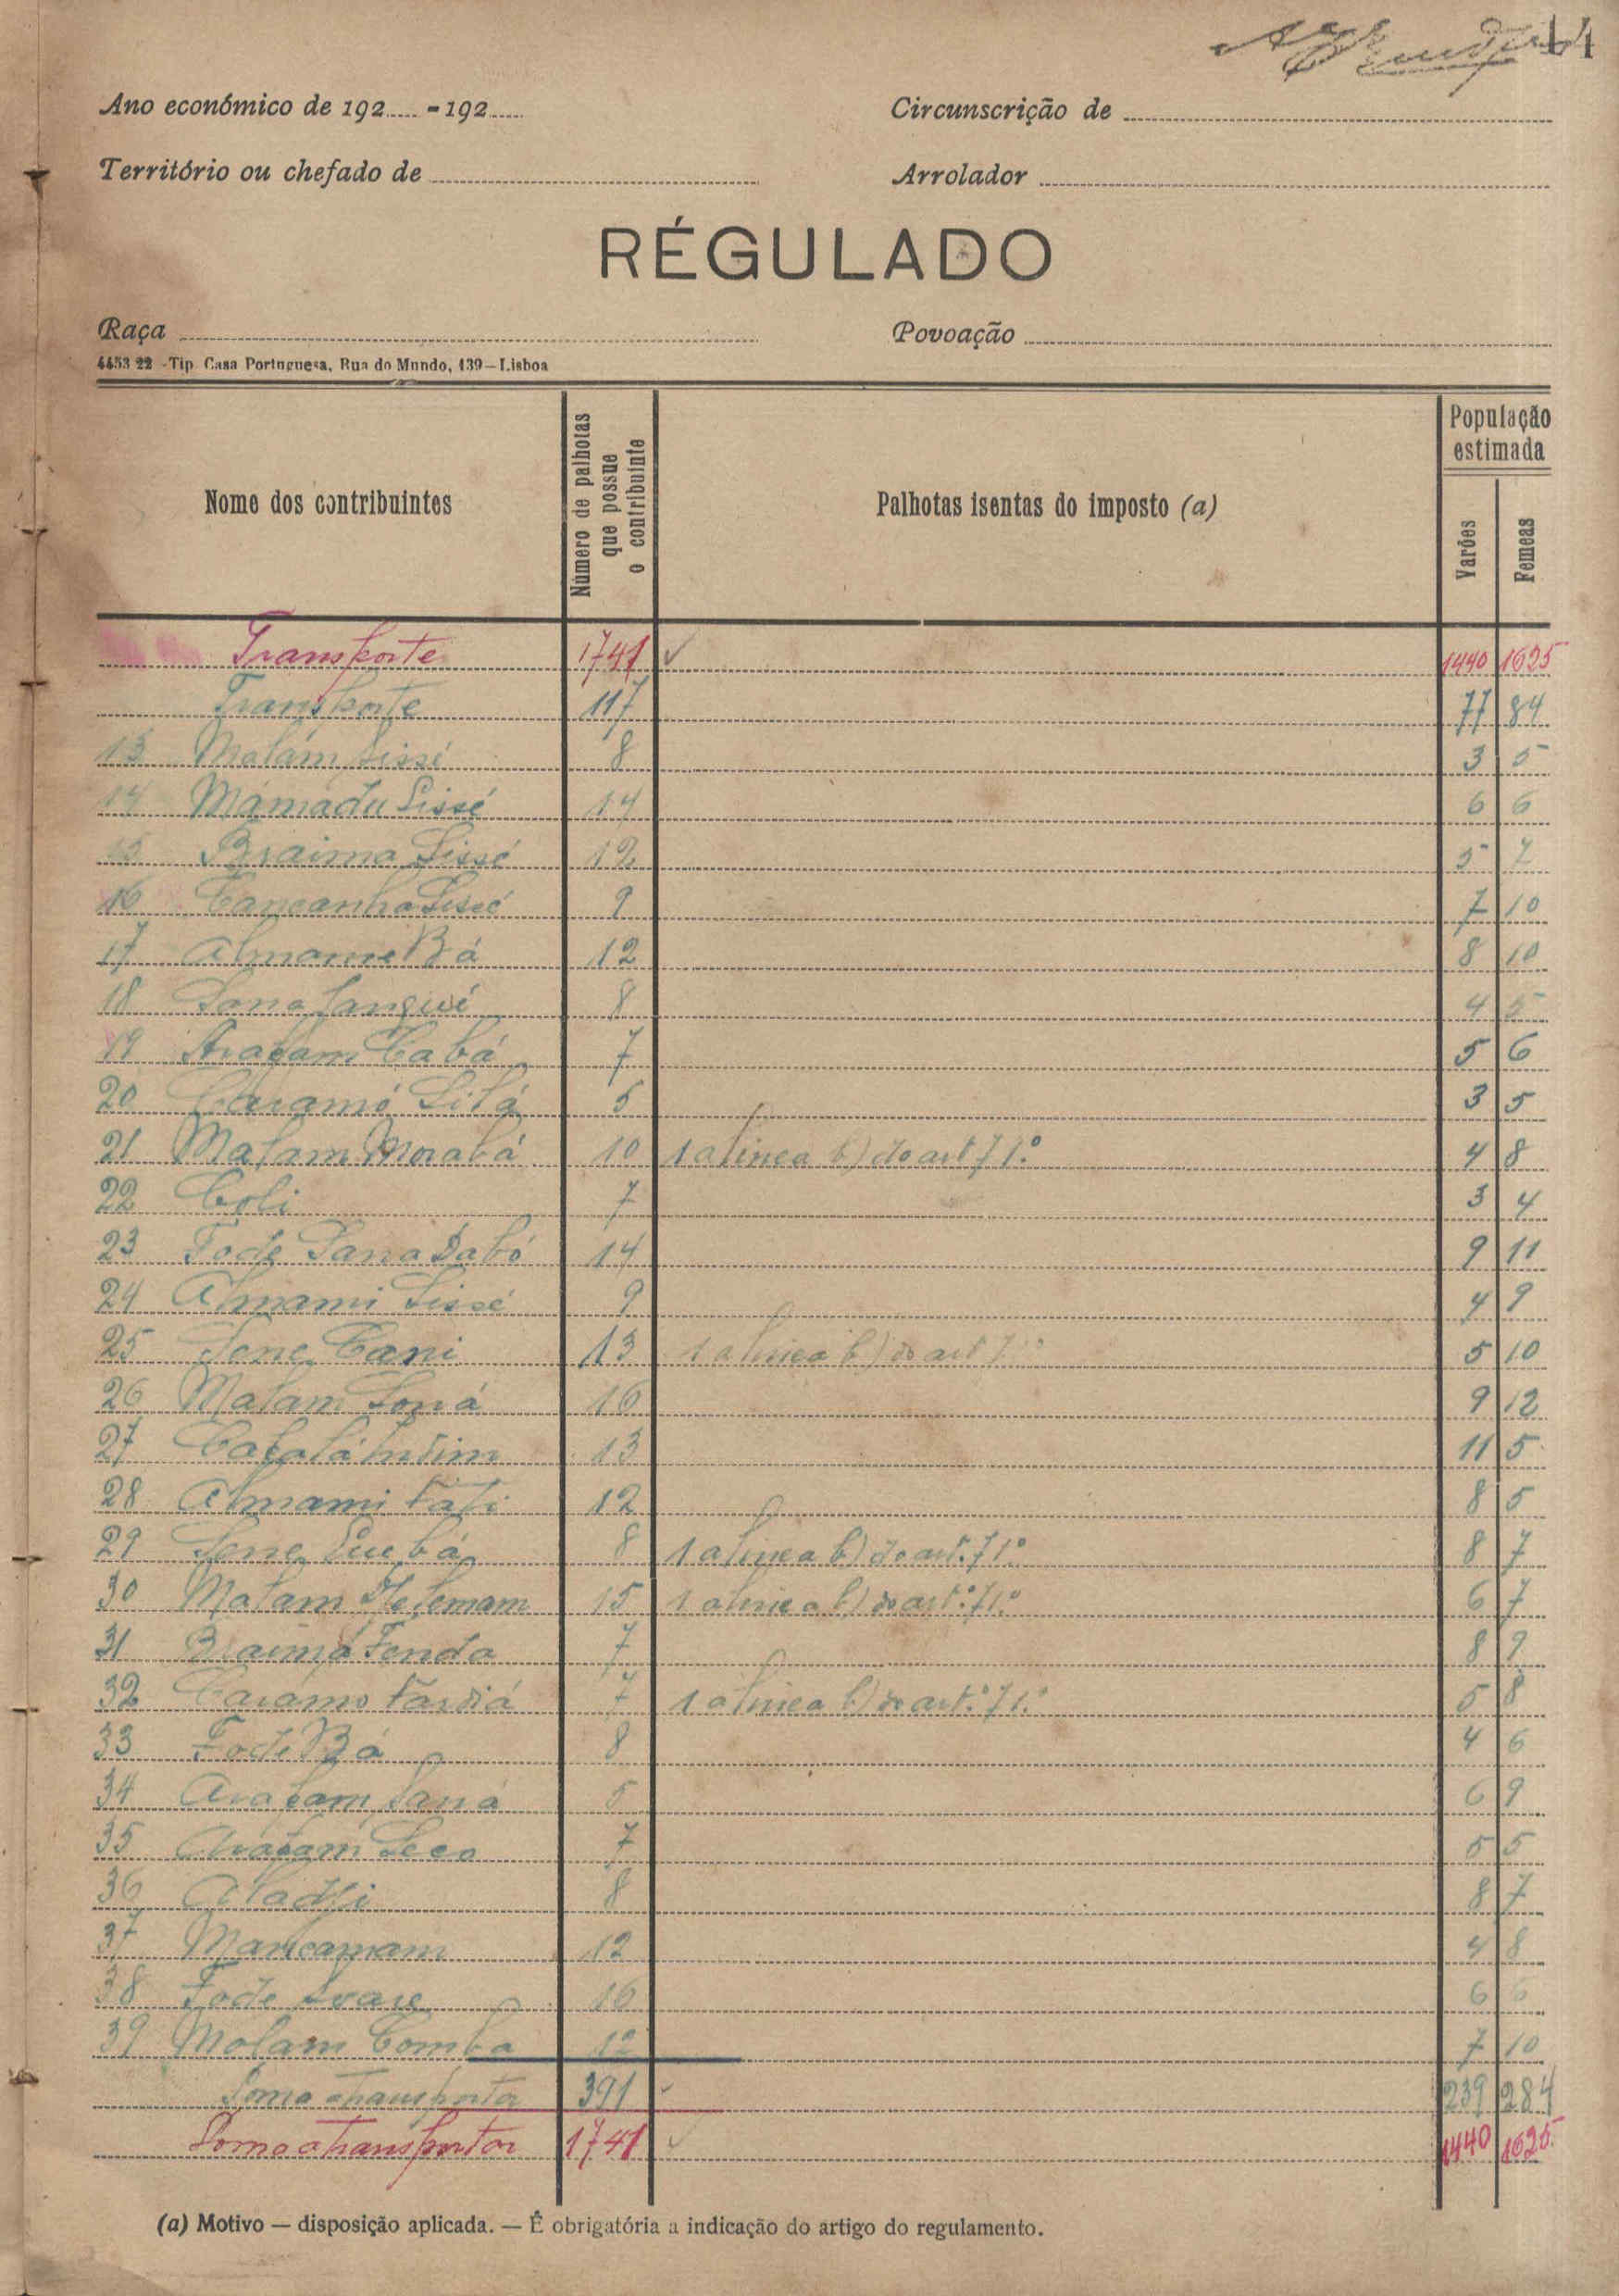 64
Ano económico de 192..... -192.....
Circunscrição de
Território ou chefado de
Arrolador
RÉGULADO
Raça
Povoação
4453 22 - Tip. Casa Portuguesa, Rua do Mundo, 139 — Lisboa
Nome dos contribuintes
Número de palhotas que possue o contribuinte
Palhotas isentas do imposto (a)
População estimada
Varões
Femeas
Transporte 1741 ✓ 1440 1625
Transporte 117 77 84
13 Malám Sissé 8 3 5
14 Mamadu Sissé 14 6 6
15 Braima Sissé 12 5 7
16 Cancanha Sissé 9 7 10
17 Almame Bá 12 8 10
18 Sana 8 4 5
19 Arafam Cabá 7 5 6
20 Caramó 5 3 5
21 Malam 10 1 alinea b) do art 71.º 4 8
22 Coli 7 3 4
23 Fode Sana Dabó 14 9 11
24 Almami Sissé 9 4 9
25 Sene Cani 13 1 alinea b) do art 71.º 5 10
26 Malam Soná 16 9 12
27 13 11 5
28 Almami Fati 12 8 5
29 Sene 8 1 alinea b) do art.º 71.º 8 7
30 Malam 15 1 alinea b) do art.º 71.º 6 7
31 Braima Fenda 7 8 9
32 Caramo 7 1 alinea b) do art.º 71.º 5 8
33 Fodé Bá 8 4 6
34 Arafam Saná 5 6 9
35 Arafam Seco 7 5 5
36 Aladji 8 8 7
37 12 4 8
38 Fode 16 6 6
39 Malam Comba 12 7 10
Soma a transportar 391 ✓ 239 284
Soma a transportar 1741 ✓ 1440 1625
(a) Motivo — disposição aplicada. — É obrigatória a indicação do artigo do regulamento.